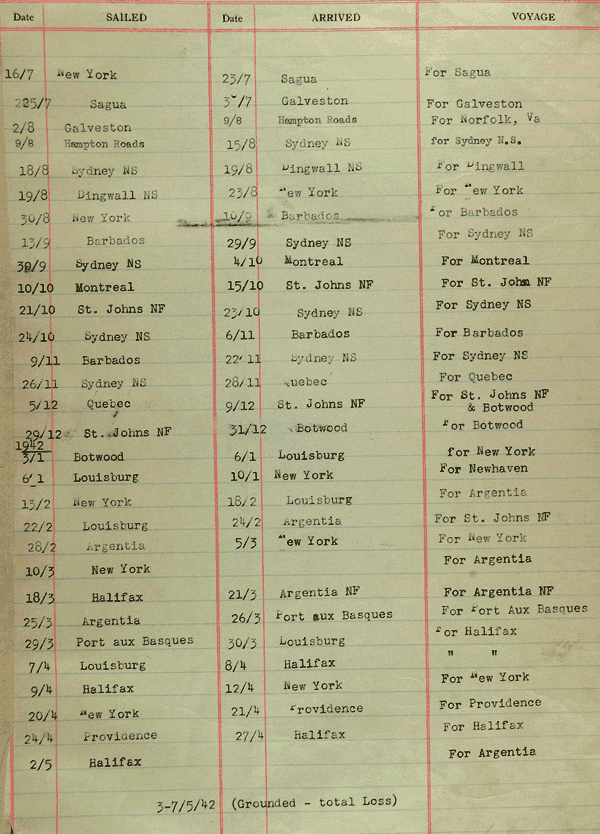 Date SAILED Date ARRIVED VOYAGE
16/7 New York 23/7 Sagua For Sagua
225/7 Sagua 3 /7 Galveston For Galveston
2/8 Galveston 9/8 Hampton Roads For Norfolk, Va
9/8 Hampton Roads 15/8 Sydney NS for Sydney N.S.
18/8 Sydney NS 19/8 Dingwall NS For Dingwall
19/8 Dingwall NS 23/8 New York For New York
30/8 New York 10/9 Barbados For Barbados
13/9 Barbados 29/9 Sydney NS For Sydney NS
30/9 Sydney NS 4/10 Montreal For Montreal
10/10 Montreal 15/10 St. Johns NF For St. John NF
21/10 St. Johns NF 23/10 Sydney NS For Sydney NS
24/10 Sydney NS 6/11 Barbados For Barbados
9/11 Barbados 22/11 Sydney NS For Sydney NS
26/11 Sydney NS 28/11 Quebec For Quebec
5/12 Quebec 9/12 St. Johns NF For St. Johns NF
& Botwood
29/12 St. Johns NF 31/12 Botwood For Botwood
1942
3/1 Botwood 6/1 Louisburg for New York
6/1 Louisburg 10/1 New York For Newhaven
13/2 New York 18/2 Louisburg For Argentia
22/2 Louisburg 24/2 Argentia For St. Johns NF
28/2 Argentia 5/3 New York For New York
10/3 New York For Argentia
18/3 Halifax 21/3 Argentia NF For Argentia NF
25/3 Argentia 26/3 Port aux Basques For Port Aux Basques
29/3 Port aux Basques 30/3 Louisburg For Halifax
7/4 Louisburg 8/4 Halifax " "
9/4 Halifax 12/4 New York For New York
20/4 New York 21/4 Providence For Providence
24/4 Providence 27/4 Halifax For Halifax
2/5 Halifax For Argentia
3-7/5/42 (Grounded - total Loss)